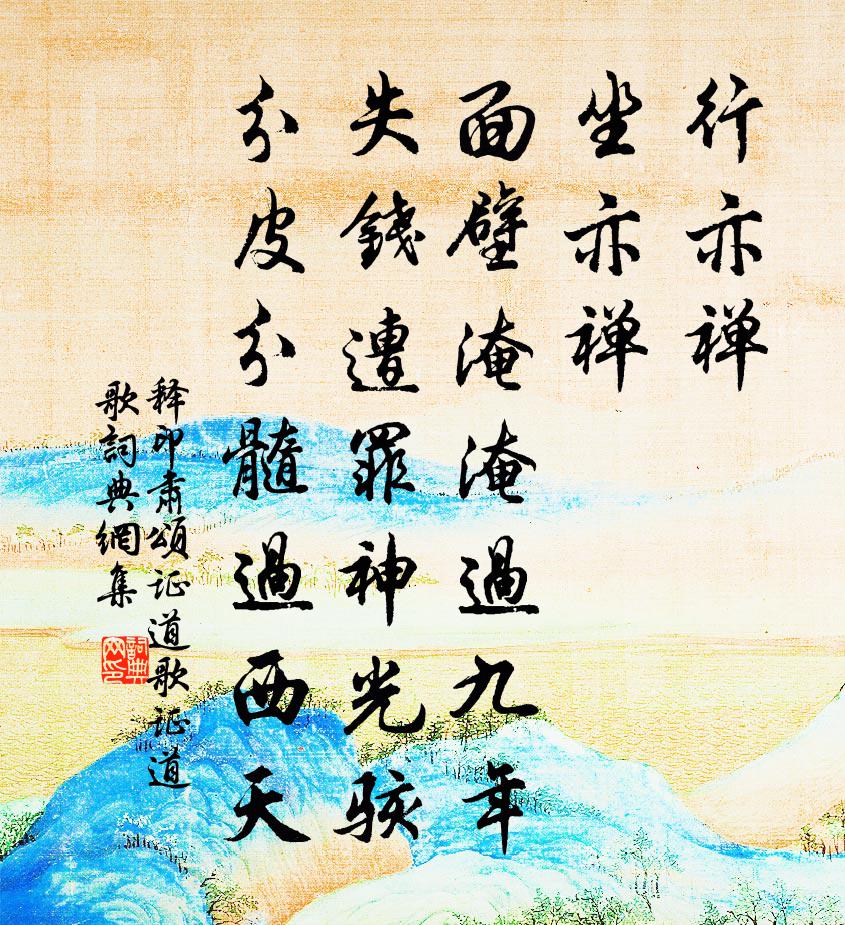 行亦禅
坐亦禅
面壁淹淹過九年
失錢遭罪神光骇
分皮分髓過西天
释印肃頌证道歌证道
歌詞典網集
詞典
网印